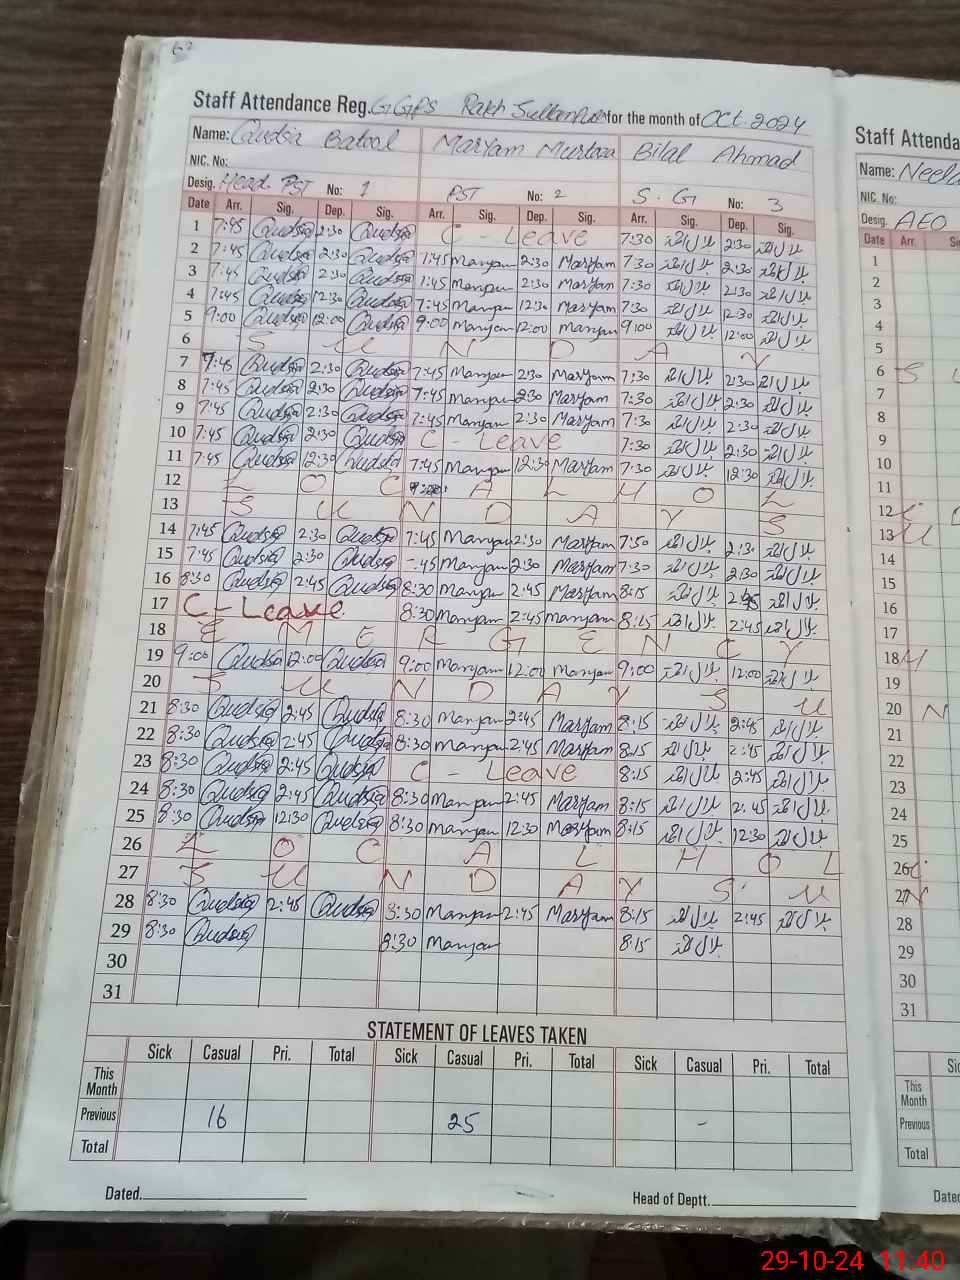 62
Staff Attendance Reg. GGPS Rakh Sultanpur for the month of Oct. 2024
Name: Qudsia Batool Maryam Murtaza Bilal Ahmad
NIC. No:
Desig. Head PST No: 1 PST No: 2 S. G No: 3
Date Arr. Sig. Dep. Sig. Arr. Sig. Dep. Sig. Arr. Sig. Dep. Sig.
1 7:45 Qudsia 2:30 Qudsia C - Leave 7:30 بلال احمد 2:30 بلال احمد
2 7:45 Qudsia 2:30 Qudsia 7:45 Maryam 2:30 Maryam 7:30 بلال احمد 2:30 بلال احمد
3 7:45 Qudsia 2:30 Qudsia 7:45 Maryam 2:30 Maryam 7:30 بلال احمد 2:30 بلال احمد
4 7:45 Qudsia 12:30 Qudsia 7:45 Maryam 12:30 Maryam 7:30 بلال احمد 12:30 بلال احمد
5 9:00 Qudsia 12:00 Qudsia 9:00 Maryam 12:00 Maryam 9:00 بلال احمد 12:00 بلال احمد
6 S U N D A Y
7 7:45 Qudsia 2:30 Qudsia 7:45 Maryam 2:30 Maryam 7:30 بلال احمد 2:30 بلال احمد
8 7:45 Qudsia 2:30 Qudsia 7:45 Maryam 2:30 Maryam 7:30 بلال احمد 2:30 بلال احمد
9 7:45 Qudsia 2:30 Qudsia 7:45 Maryam 2:30 Maryam 7:30 بلال احمد 2:30 بلال احمد
10 7:45 Qudsia 2:30 Qudsia C - Leave 7:30 بلال احمد 2:30 بلال احمد
11 7:45 Qudsia 12:30 Qudsia 7:45 Maryam 12:30 Maryam 7:30 بلال احمد 12:30 بلال احمد
12 L O C A L H O L
13 S U N D A Y S
14 7:45 Qudsia 2:30 Qudsia 7:45 Maryam 2:30 Maryam 7:30 بلال احمد 2:30 بلال احمد
15 7:45 Qudsia 2:30 Qudsia 7:45 Maryam 2:30 Maryam 7:30 بلال احمد 2:30 بلال احمد
16 8:30 Qudsia 2:45 Qudsia 8:30 Maryam 2:45 Maryam 8:15 بلال احمد 2:45 بلال احمد
17 C - Leave 8:30 Maryam 2:45 Maryam 8:15 بلال احمد 2:45 بلال احمد
18 E M E R G E N C Y
19 9:00 Qudsia 12:00 Qudsia 9:00 Maryam 12:00 Maryam 9:00 بلال احمد 12:00 بلال احمد
20 S U N D A Y S U
21 8:30 Qudsia 2:45 Qudsia 8:30 Maryam 2:45 Maryam 8:15 بلال احمد 2:45 بلال احمد
22 8:30 Qudsia 2:45 Qudsia 8:30 Maryam 2:45 Maryam 8:15 بلال احمد 2:45 بلال احمد
23 8:30 Qudsia 2:45 Qudsia C - Leave 8:15 بلال احمد 2:45 بلال احمد
24 8:30 Qudsia 2:45 Qudsia 8:30 Maryam 2:45 Maryam 8:15 بلال احمد 2:45 بلال احمد
25 8:30 Qudsia 12:30 Qudsia 8:30 Maryam 12:30 Maryam 8:15 بلال احمد 12:30 بلال احمد
26 L O C A L H O L
27 S U N D A Y S U
28 8:30 Qudsia 2:45 Qudsia 8:30 Maryam 2:45 Maryam 8:15 بلال احمد 2:45 بلال احمد
29 8:30 Qudsia 8:30 Maryam 8:15 بلال احمد
30
31
STATEMENT OF LEAVES TAKEN
Sick Casual Pri. Total Sick Casual Pri. Total Sick Casual Pri. Total
This Month
Previous 16 25 -
Total
Dated. Head of Deptt.
Staff Attenda
Name: Neela
NIC. No:
Desig. AEO
Date Arr. Si
1
2
3
4
5
6 S U
7
8
9
10
11
12
13 U
14
15
16
17
18
19
20 N
21
22
23
24
25
26
27
28
29
30
31
Sic
This Month
Previous
Total
Dated
29-10-24 11:40